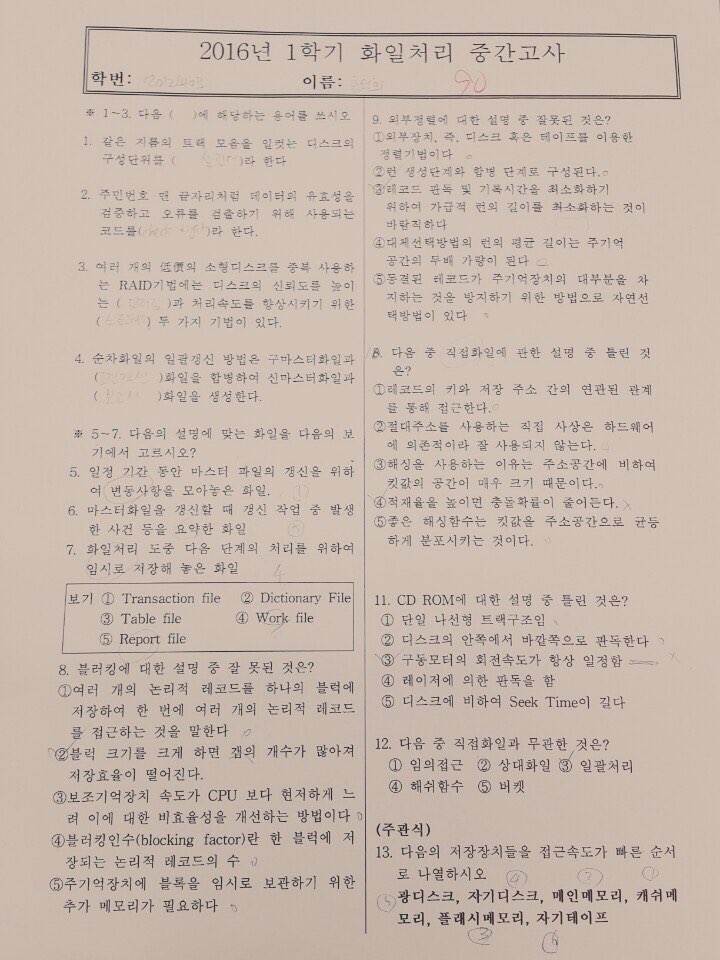 2016년 1학기 화일처리 중간고사
학번:
이름:
90
※ 1~3. 다음 ( )에 해당하는 용어를 쓰시오
1. 같은 지름의 트랙 모음을 일컫는 디스크의
구성단위를 ( 실린더 )라 한다
2. 주민번호 맨 끝자리처럼 데이터의 유효성을
검증하고 오류를 검출하기 위해 사용되는
코드를( )라 한다.
3. 여러 개의 低價의 소형디스크를 중복 사용하
는 RAID기법에는 디스크의 신뢰도를 높이
는 ( 미러링 )과 처리속도를 향상시키기 위한
( ) 두 가지 기법이 있다.
4. 순차화일의 일괄갱신 방법은 구마스터화일과
( )화일을 합병하여 신마스터화일과
( )화일을 생성한다.
※ 5~7. 다음의 설명에 맞는 화일을 다음의 보
기에서 고르시오?
5. 일정 기간 동안 마스터 파일의 갱신을 위하
여 변동사항을 모아놓은 화일. ①
6. 마스터화일을 갱신할 때 갱신 작업 중 발생
한 사건 등을 요약한 화일 ⑤
7. 화일처리 도중 다음 단계의 처리를 위하여
임시로 저장해 놓은 화일 4
보기 ① Transaction file ② Dictionary File
③ Table file ④ Work file
⑤ Report file
8. 블러킹에 대한 설명 중 잘 못된 것은?
①여러 개의 논리적 레코드를 하나의 블럭에
저장하여 한 번에 여러 개의 논리적 레코드
를 접근하는 것을 말한다
②블럭 크기를 크게 하면 갭의 개수가 많아져
저장효율이 떨어진다.
③보조기억장치 속도가 CPU 보다 현저하게 느
려 이에 대한 비효율성을 개선하는 방법이다
④블러킹인수(blocking factor)란 한 블럭에 저
장되는 논리적 레코드의 수
⑤주기억장치에 블록을 임시로 보관하기 위한
추가 메모리가 필요하다
9. 외부정렬에 대한 설명 중 잘못된 것은?
①외부장치, 즉, 디스크 혹은 테이프를 이용한
정렬기법이다
②런 생성단계와 합병 단계로 구성된다.
③레코드 판독 및 기록시간을 최소화하기
위하여 가급적 런의 길이를 최소화하는 것이
바람직하다
④대체선택방법의 런의 평균 길이는 주기억
공간의 두배 가량이 된다
⑤동결된 레코드가 주기억장치의 대부분을 차
지하는 것을 방지하기 위한 방법으로 자연선
택방법이 있다
8. 다음 중 직접화일에 관한 설명 중 틀린 것
은?
①레코드의 키와 저장 주소 간의 연관된 관계
를 통해 접근한다.
②절대주소를 사용하는 직접 사상은 하드웨어
에 의존적이라 잘 사용되지 않는다.
③해싱을 사용하는 이유는 주소공간에 비하여
킷값의 공간이 매우 크기 때문이다.
④적재율을 높이면 충돌확률이 줄어든다.
⑤좋은 해싱함수는 킷값을 주소공간으로 균등
하게 분포시키는 것이다.
11. CD ROM에 대한 설명 중 틀린 것은?
① 단일 나선형 트랙구조임
② 디스크의 안쪽에서 바깥쪽으로 판독한다
③ 구동모터의 회전속도가 항상 일정함
④ 레이저에 의한 판독을 함
⑤ 디스크에 비하여 Seek Time이 길다
12. 다음 중 직접화일과 무관한 것은?
① 임의접근 ② 상대화일 ③ 일괄처리
④ 해쉬함수 ⑤ 버켓
(주관식)
13. 다음의 저장장치들을 접근속도가 빠른 순서
로 나열하시오
④ ② ①
⑤ 광디스크, 자기디스크, 메인메모리, 캐쉬메
모리, 플래시메모리, 자기테이프
③ ⑥